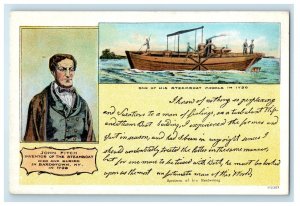 ONE OF HIS STEAMBOAT MODELS IN 1786
I know of nothing so perplexing
and vexatious to a man of feelings, as a turbulent Wife
and Steam Boat building. I experienced the former and
quit in season, and had I been in my right senses I
should undoubtedly treated the latter in the same manner,
but for one man to be teised with Both, he must be looked
upon as the most unfortunate man of this World.
Specimen of his Handwriting
JOHN FITCH
INVENTOR OF THE STEAMBOAT
DIED AND BURIED
IN BARDSTOWN, KY.
IN 1798